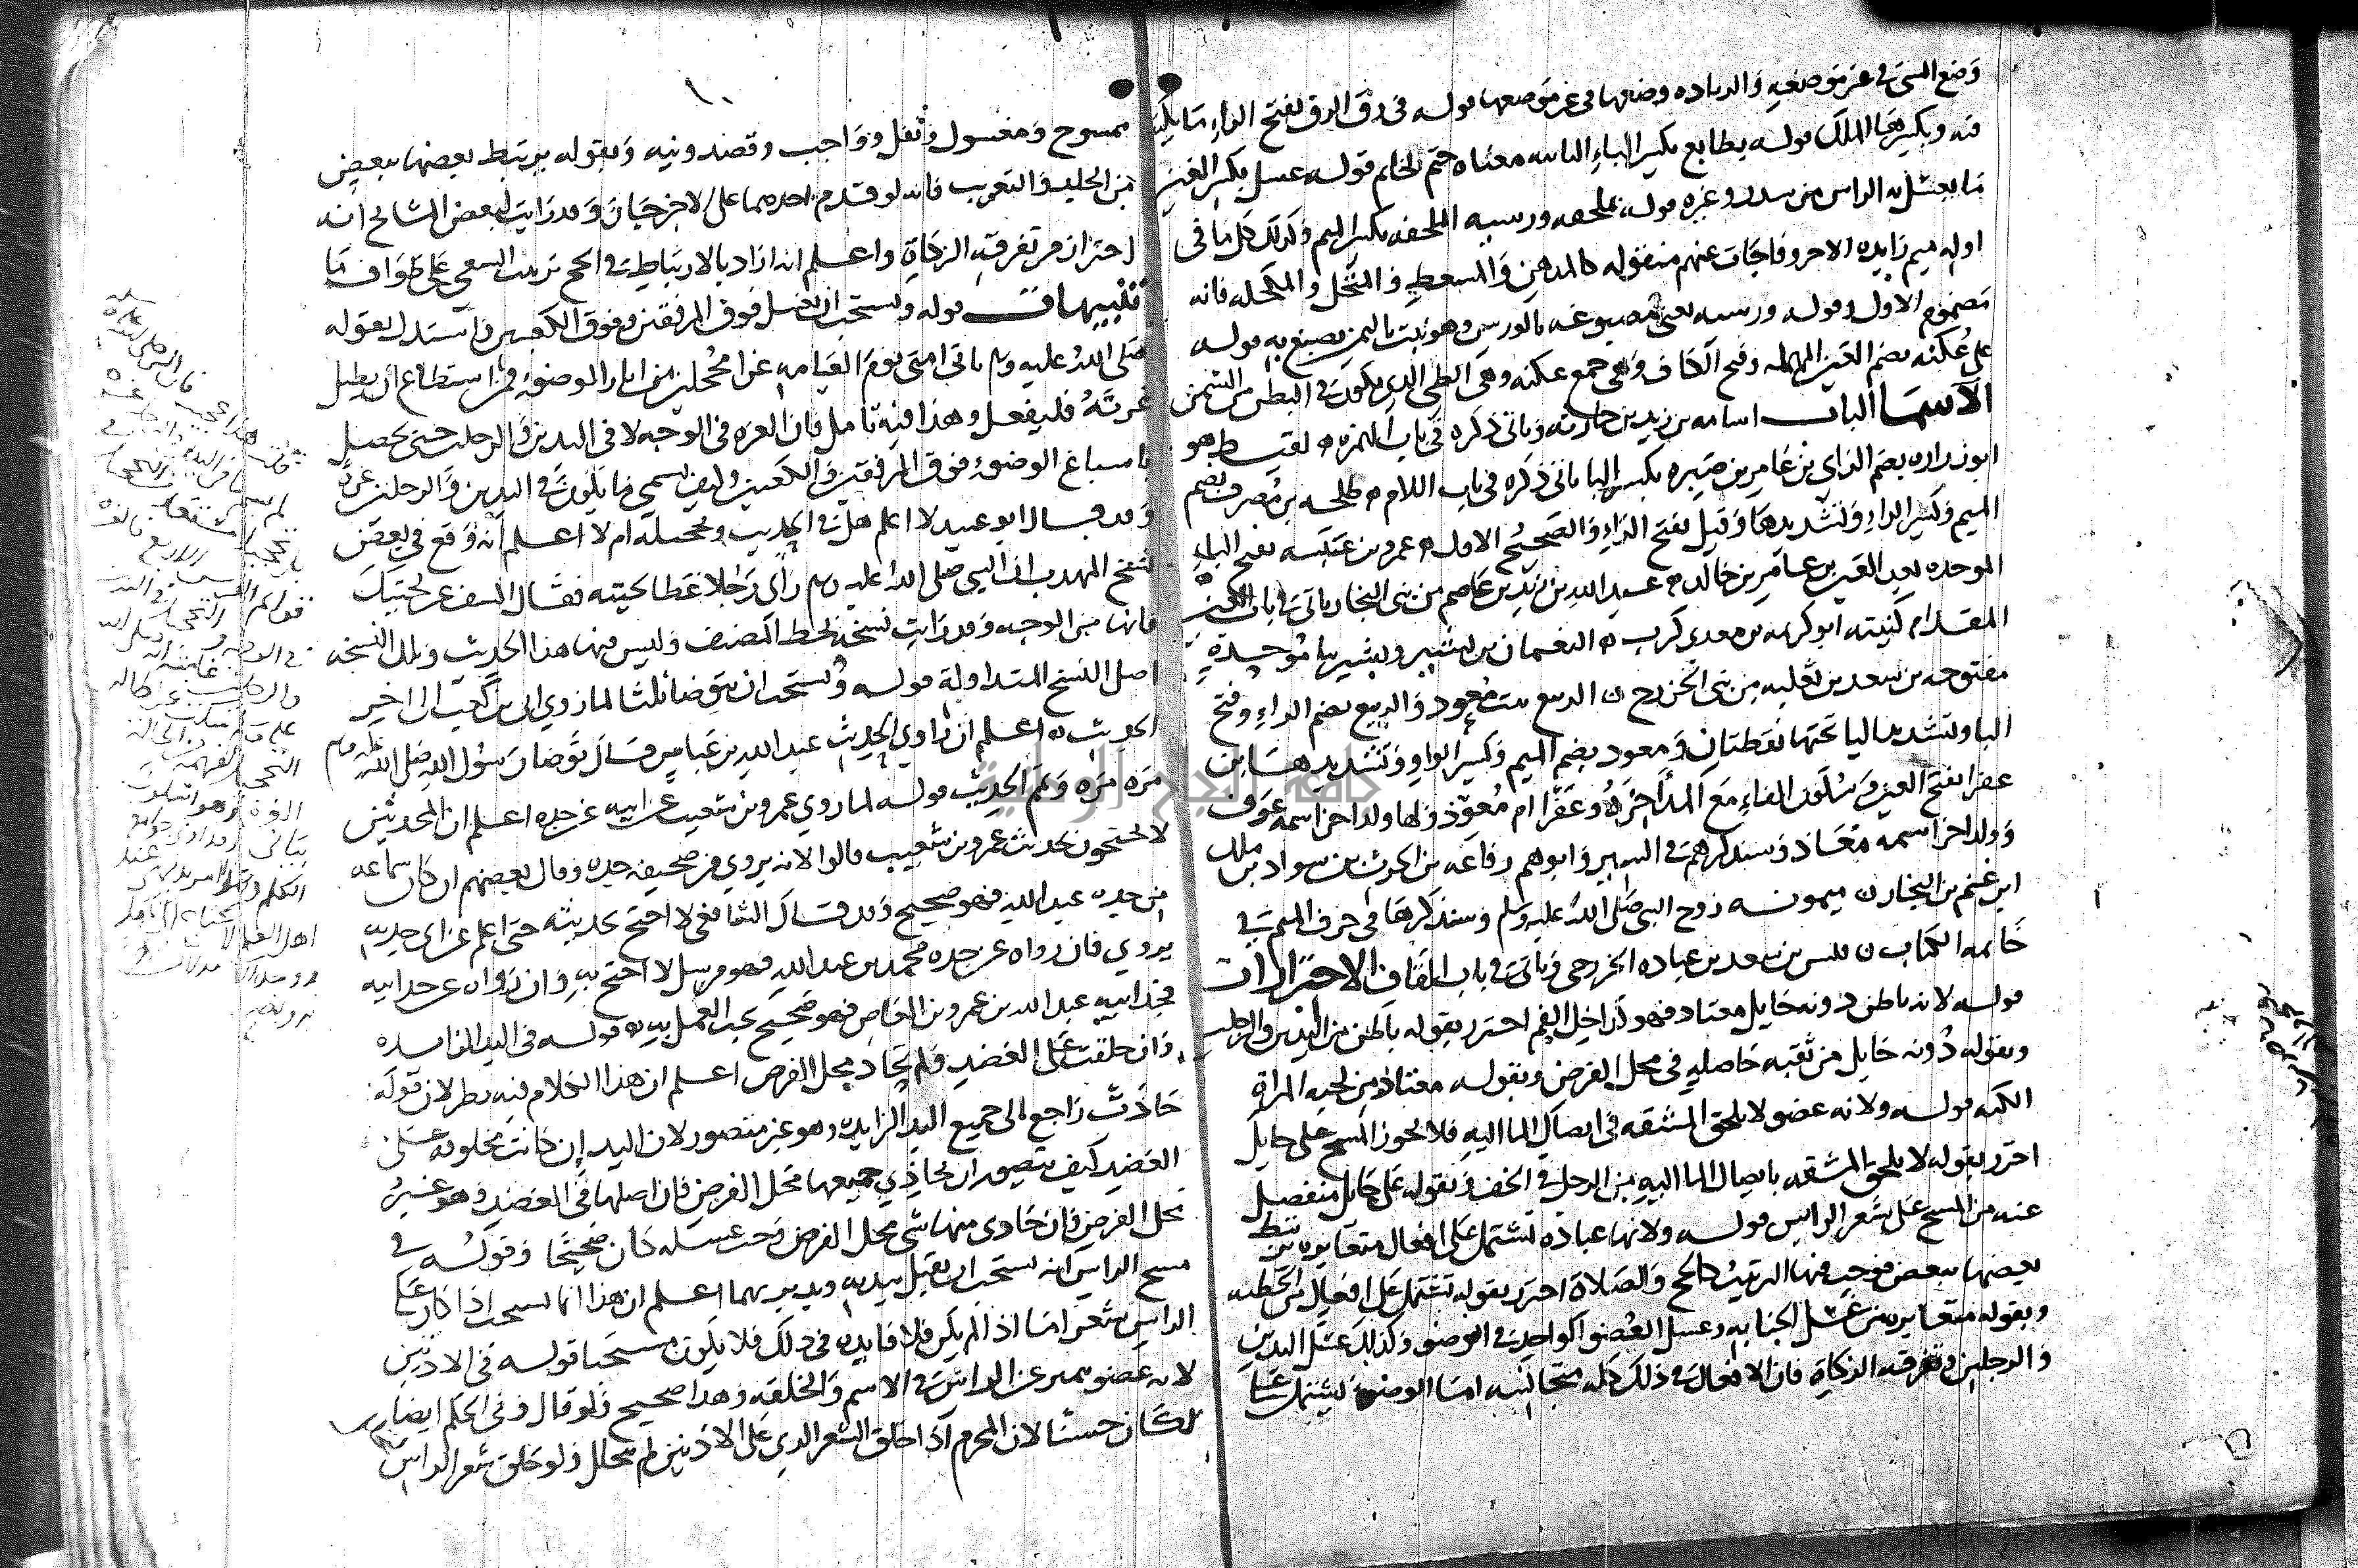 وضع الشيء في غير موضعه والزيادة وضعها في غير موضعها قوله في رق الرق بفتح الراء ما يكتب
فيه وبكسرها الملك قوله بطابع بكسر الباء الثانية معناه ختم بخاتم قوله غسل بكسر الغين
ما يغسل به الراس من سدر وغيره قوله بملحفة ورسية الملحفة بكسر الميم وكذلك كل ما في
اوله ميم زايدة الا حروفا جات عنهم منقوله كالمدهن والمسعط والمنخل والمكحله فانه
مضموم الاول وقوله ورسية يعني مصبوغه بالورس وهو نبت باليمن يصبغ به قوله
على عكنه بضم العين المهملة وفتح الكاف وهي جمع عكنه وهي الطي الذي يكون في البطن من السمن
الاسما الباب اسامه بن زيد بن حارثه وياتي ذكره في باب الهمزه لقيط هو
ابو زراره بضم الزاي بن عامر بن صبره بكسر البا ياتي ذكره في باب اللام طلحه بن مصرف بضم
الميم وكسر الراء وتشديدها وقيل بفتح الراء والصحيح الاول عمرو بن عبسه بفتح الباء
الموحدة بعد العين بن عامر بن خالد عبد الله بن زيد بن عاصم من بني النجار ياتي في باب
المقدام كنيته ابو كريمه بن معدي كرب النعمان بن بشير وبشير بيا موحدة
مفتوحه بن سعد بن ثعلبه من بني الخزرج الربيع بنت معوذ والربيع بضم الراء وفتح
البا وتشديد اليا تحتها نقطتان ومعوذ بضم الميم وكسر الواو وتشديدها بن
عفرا بفتح العين وسكون الفاء مع المد اخره وعفرا ام معوذ ولها ولد اخر اسمه عوف
وولد اخر اسمه معاذ وسنذكرهم في السير وابوهم رفاعه بن الحرث بن سواد بن ملك
ابن غنم بن النجار ميمونه زوج النبي صلى الله عليه وسلم وسنذكرها في حرف الميم في
خاتمه الكتاب قيس بن سعد بن عباده الخزرجي وياتي في باب القاف الاحترازات
قوله لانه باطن دونه حايل معتاد فهو داخل الفم احترز بقوله باطن من اليدين والرجلين
وبقوله دونه حايل من ثقبه حاصله في محل الفرض وبقوله معتاد من لحيه المراة
الكثه قوله ولانه عضو لا يلحق المشقه في ايصال الما اليه فلا يجوز المسح على حايل
احترز بقوله لا يلحق المشقه بايصال الما اليه من الرجل في الخف وبقوله على حايل منفصل
عنه من المسح على شعر الراس قوله ولانها عباده تشتمل على افعال متغايره يرتبط
بعضها ببعض فوجب فيها الترتيب كالحج والصلاة احترز بقوله تشتمل على افعال من الخطبه
وبقوله متغايره من غسل الجنابه وغسل العضو الواحد في الوضو وكذلك غسل اليدين
والرجلين وتفرقه الزكاة فان الافعال في ذلك كله متجانسه اما الوضو فيشتمل على
١٠
ممسوح ومغسول ونفل وواجب وقصد ونيه وبقوله يرتبط بعضها ببعض
من الجلد والتغريب فانه لو قدم احدهما على الاخر جاز وقد رايت لبعض المشايخ انه
احتراز من تفرقة الزكاة واعلم انه اراد بالارتباط في الحج ترتيب السعي على طواف ما
تنبيهات قوله ويستحب ان يغسل فوق المرفقين وفوق الكعبين واستدل بقوله
صلى الله عليه وسلم ياتي امتي يوم القيامه غرا محجلين من اثار الوضوء فمن استطاع ان يطيل
غرته فليفعل وهذا فيه تامل فان الغره في الوجه لا في اليدين والرجلين حتى يحصل
باسباغ الوضوء فوق المرفقين والكعبين وكيف يسمي ما يكون في اليدين والرجلين غره
وقد قال ابو عبيد لا اعلم هل في الحديث وتحجيله ام لا اعلم انه وقع في بعض
نسخ المهذب ان النبي صلى الله عليه وسلم راى رجلا غطا لحيته فقال اكشف عن لحيتك
فانها من الوجه وقد رايت نسخة بخط المصنف وليس فيها هذا الحديث وتلك النسخه
اصل النسخ المتداولة قوله ويستحب ان يتوضا ثلثا لما روي ابي بن كعب الى اخر
الحديث اعلم ان راوي الحديث عبد الله بن عباس قال توضا رسول الله صلى الله عليه وسلم
مره مره وتمم الحديث قوله لما روي عمرو بن شعيب عن ابيه عن جده اعلم ان المحدثين
لا يحتجون بحديث عمرو بن شعيب قالوا لانه يروي من صحيفه جده وقال بعضهم ان كان سماعه
من جده عبد الله فهو صحيح وقد قال الشافعي لا احتج بحديثه حتى اعلم عن اي جديه
يروي فان رواه عن جده محمد بن عبد الله فهو مرسل لا احتج به وان رواه عن جد ابيه
فجد ابيه عبد الله بن عمرو بن العاص فهو صحيح يجب العمل به قوله في اليد الزايده
وان خلقت على العضد فلم تحاذ محل الفرض اعلم ان هذا الكلام فيه نظر لان قوله
حاذت راجع الى جميع اليد الزايده وهو غير متصور لان اليد ان كانت مخلوقه على
العضد كيف يتصور ان يحاذي جميعها محل الفرض فان اصلها في العضد وهو غير
محل الفرض فان حاذى منها شي محل الفرض وجب غسله كان صحيحا وقوله في
مسح الراس انه يستحب ان يقبل بيديه ويدبر بهما اعلم ان هذا انما يستحب اذا كان على
الراس شعر اما اذا لم يكن فلا فايده في ذلك فلا يكون مستحبا قوله في الاذنين
لانه عضو تميز عن الراس في الاسم والخلقه وهذا صحيح ولو قال وفي الحكم ايضا
لكان حسنا لان المحرم اذا حلق الشعر الذي على الاذنين لم يتحلل ولو حلق شعر الراس